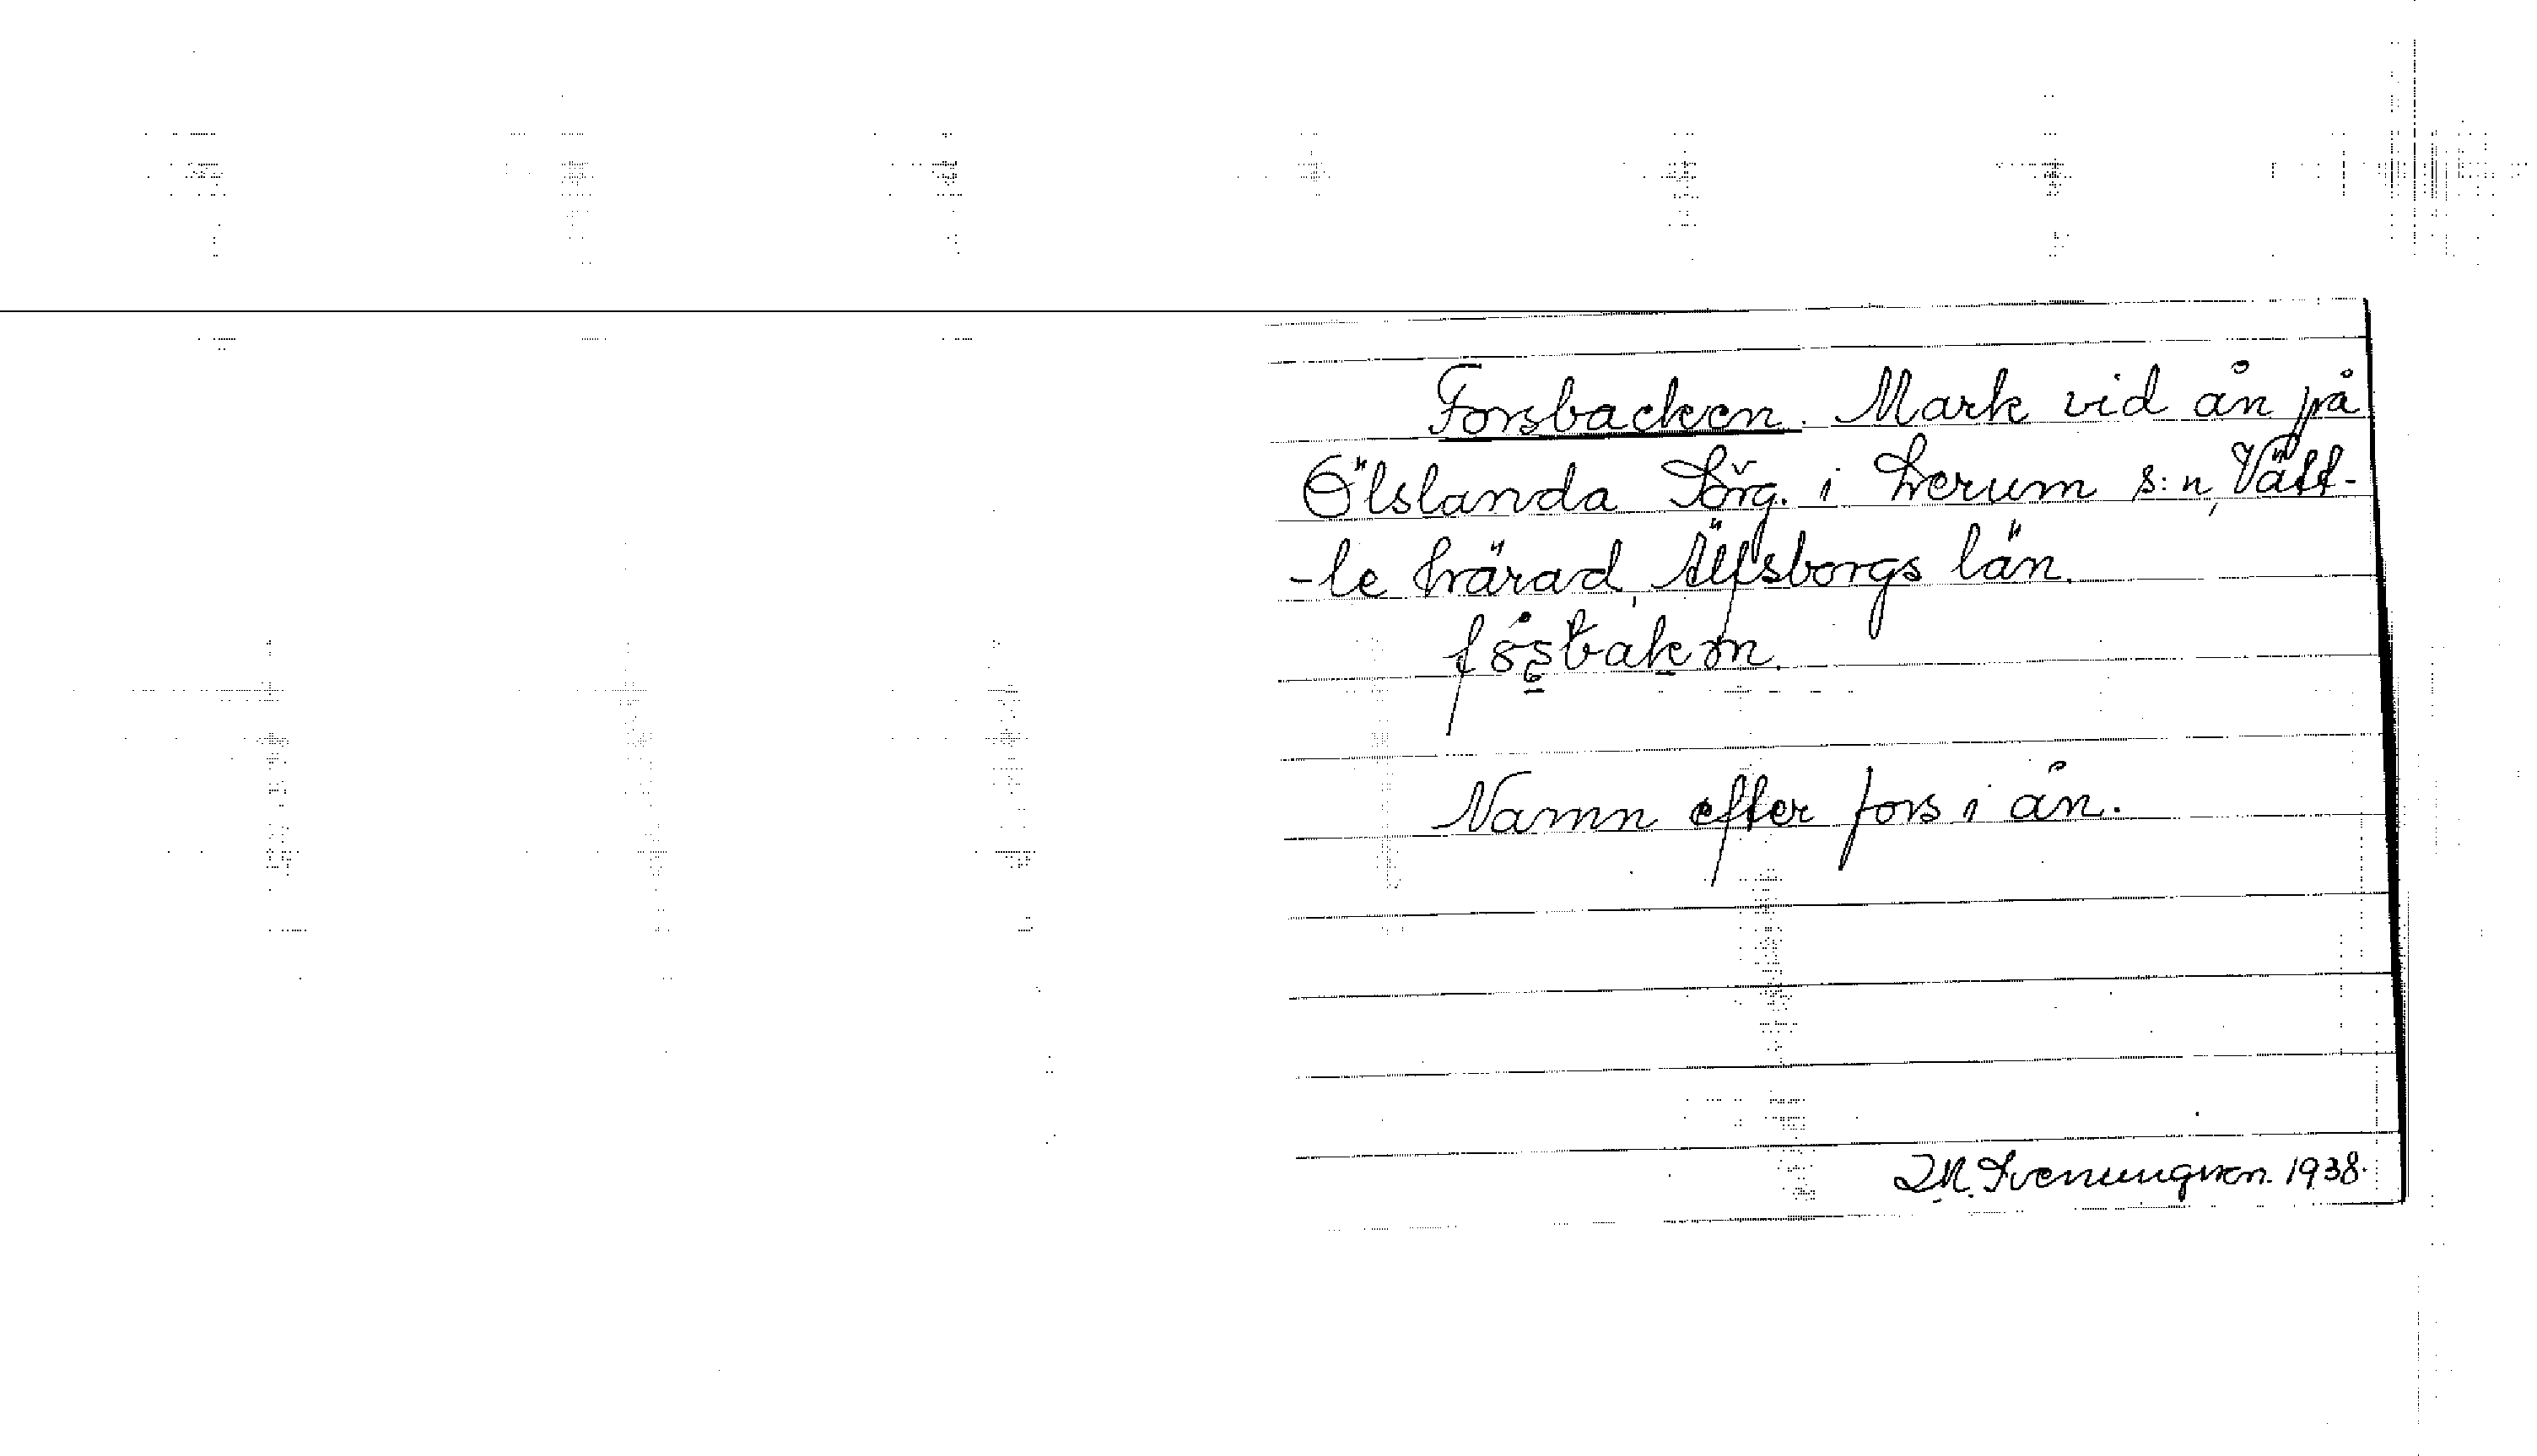 Forsbacken. Mark vid ån på
Ölslanda Sörg. i Lerum s:n, Vätt-
-le härad, Älfsborgs län.
Namn efter fors i ån.
Svenungsson. 1938.